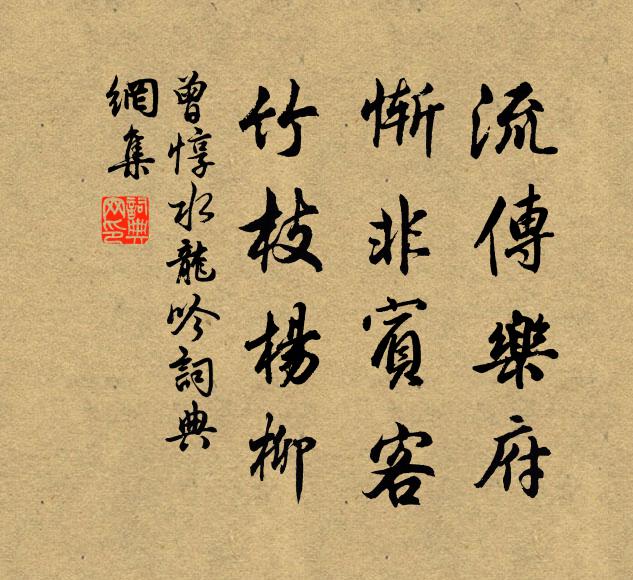 流傳樂府
慚非賓客
竹枝楊柳
曾惇水龍吟詞典
網集
詞典
网印